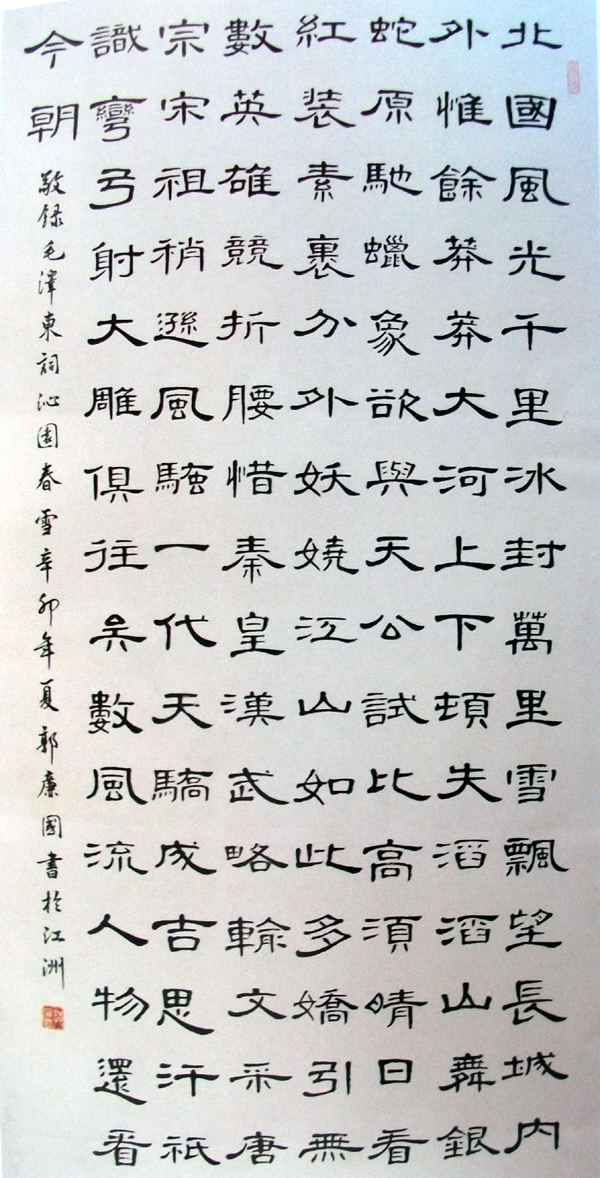 北國風光千里冰封萬里雪飄望長城內
外惟餘莽莽大河上下頓失滔滔山舞銀
蛇原馳蠟象欲與天公試比高須晴日看
紅裝素裹分外妖嬈江山如此多嬌引無
數英雄競折腰惜秦皇漢武略輸文采唐
宗宋祖稍遜風騷一代天驕成吉思汗祇
識彎弓射大雕俱往矣數風流人物還看
今朝
敬録毛澤東詞沁園春雪辛卯年夏郭廉國書於江洲